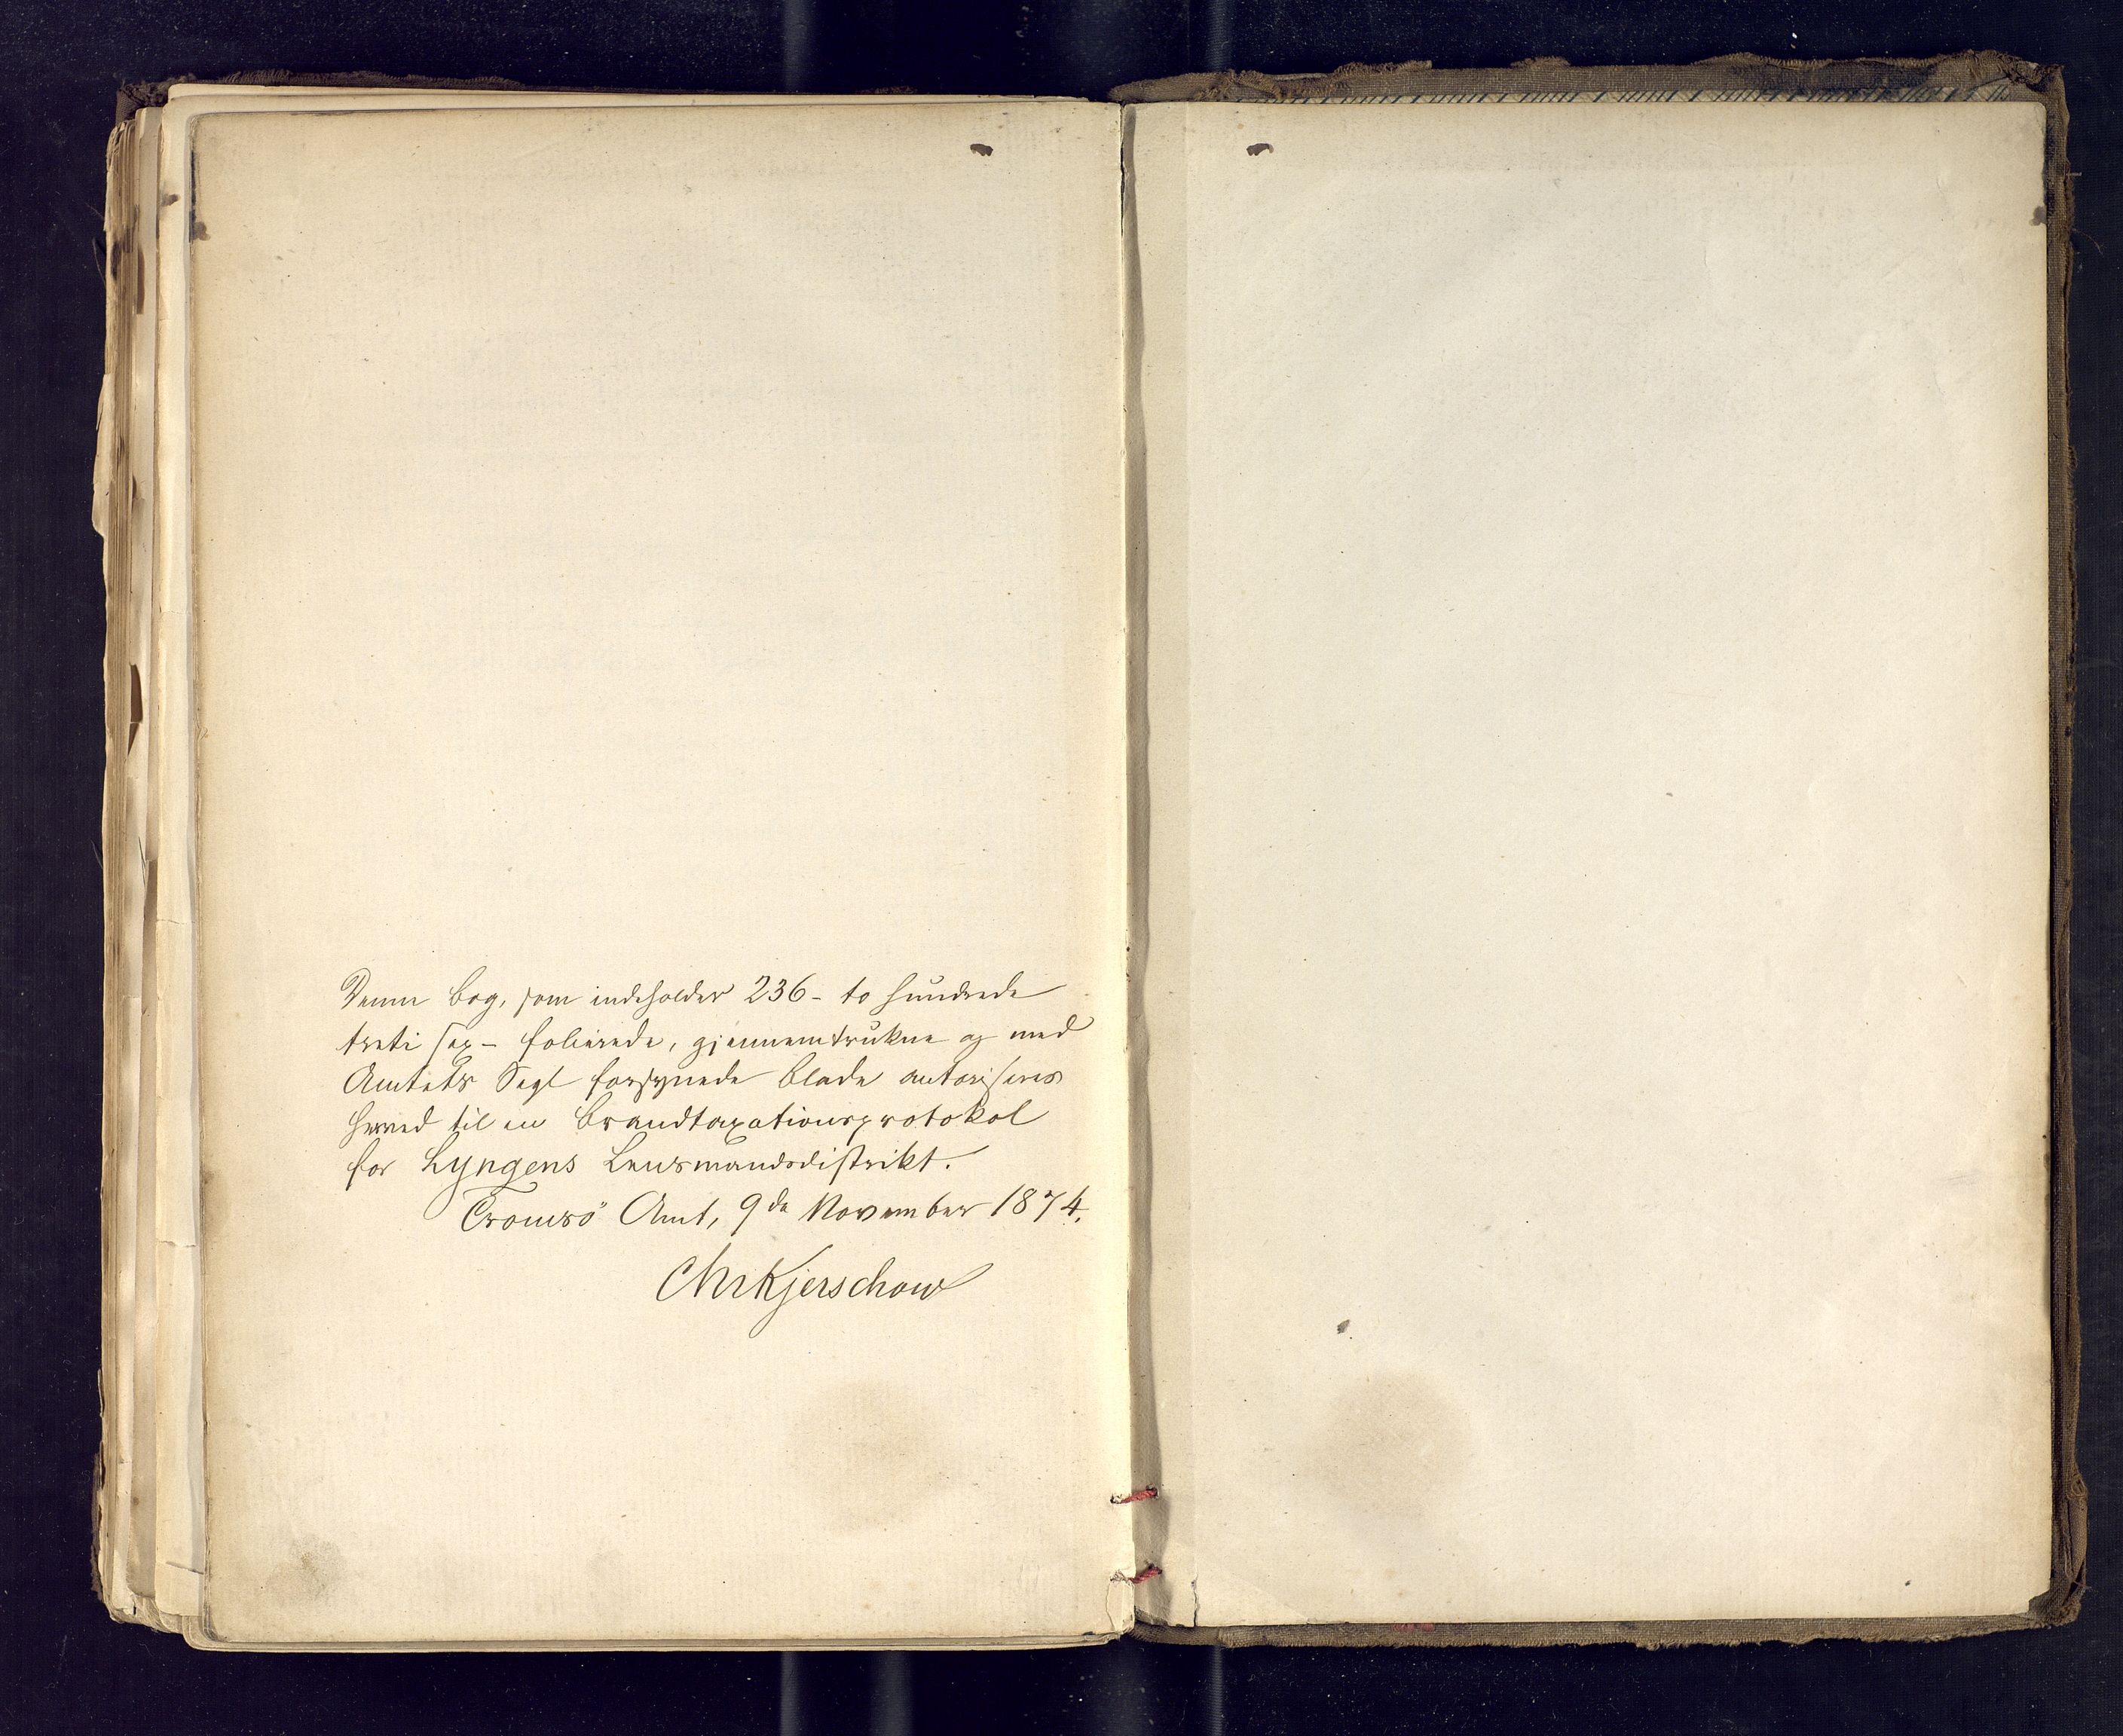 Denne Bog, som indeholder 236 - to hundrede
treti sex - folierede, gjennemtrukne og med
Amtets Segl forsynede Blade autoriseres
herved til en Brandtaxationsprotokol
for Lyngens Lensmandsdistrikt.
Tromsö Amt, 9de November 1874.
Chr Kjerschow